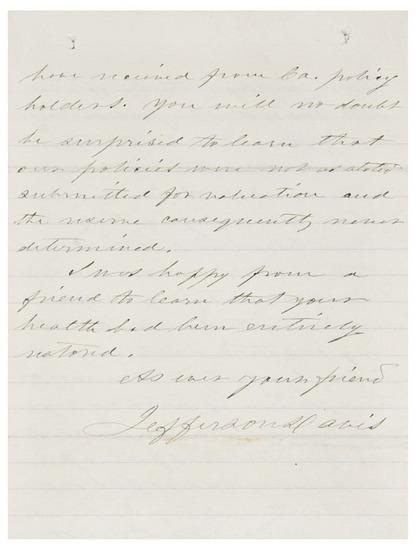 have received from Ca. policy
holders. You will no doubt
be surprised to learn that
our policies were not as stated
submitted for valuation and
the reserve consequently never
determined.
I was happy from a
friend to learn that your
health had been entirely
restored.
As ever your friend
Jefferson Davis